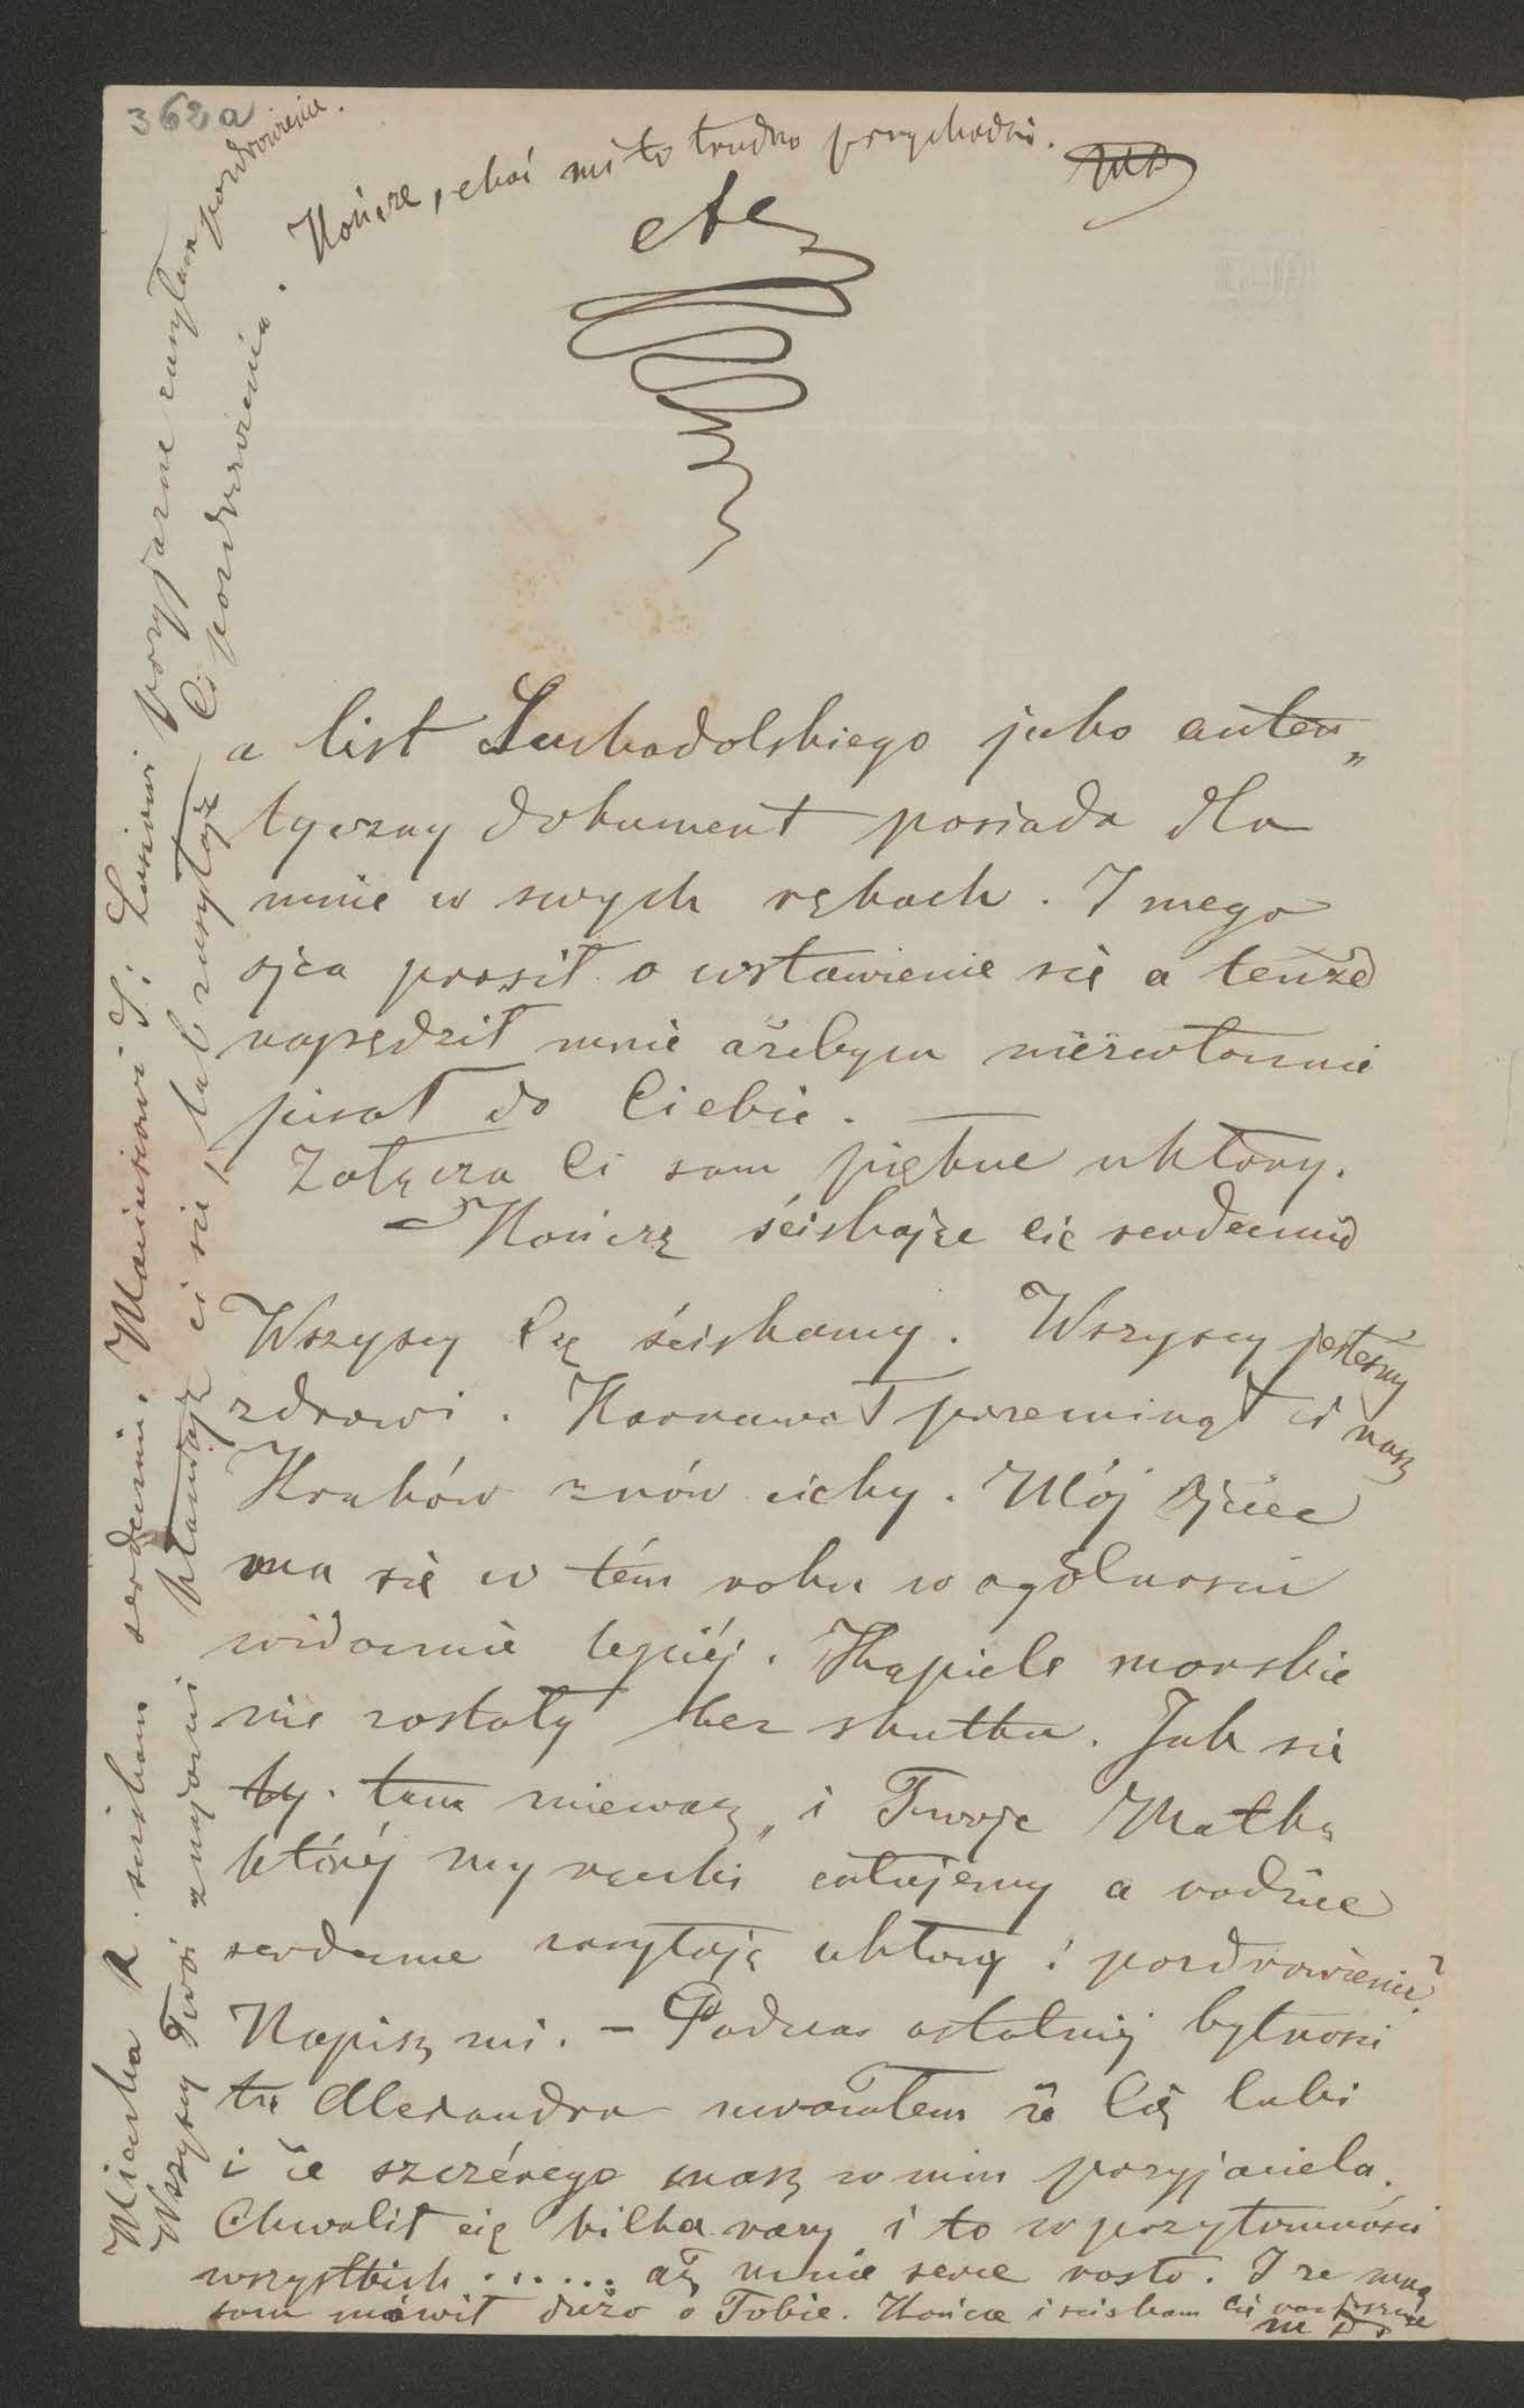 362a
a list Suchodolskiego jako auten„
tyczny dokument posiada dla
mnie w swych rękach. I mego
ojca prosił o wstawienie się a tenże
napędził mnie ażebym niezwłocznie
pisał do Ciebie. —
Załącza Ci sam piękne ukłony.
— Kończę ściskając cię serdecznie
Wszyscy Cię ściskamy. Wszyscy jesteśmy
zdrowi. Karnawał przeminął i nasz
Kraków znów cichy. Mój Ojciec
ma się w tém roku w ogólności
widocznie lepiéj. Kąpiele morskie
nie zostały bez skutku. Jak się
ty tam miewasz, i Twoja Matka
któréj my rączki całujemy a rodzice
serdeczne zasyłają ukłony i pozdrowienia?
Napisz mi. — Podczas ostatniéj bytności
tu Alexandra uważałem że Cię lubi
i że szczérego masz w nim przyjaciela.
Chwalił cię kilka razy i to w przytomności
wszystkich ...... aż mnie serce rosło. I ze mną
sam mówił dużo o Tobie. Kończę i ściskam Cię
Micska R. ściskam serdecznie. Maniusiowi i Lusiowi przyjazne zasyłam pozdrowienie.
Wszyscy Twoi znajomi kłaniają ci się i zasyłają Ci pozdrowienia. Kończę, choć mi to trudno przychodzi.